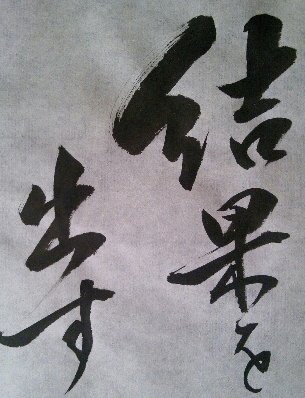 結果を
出す